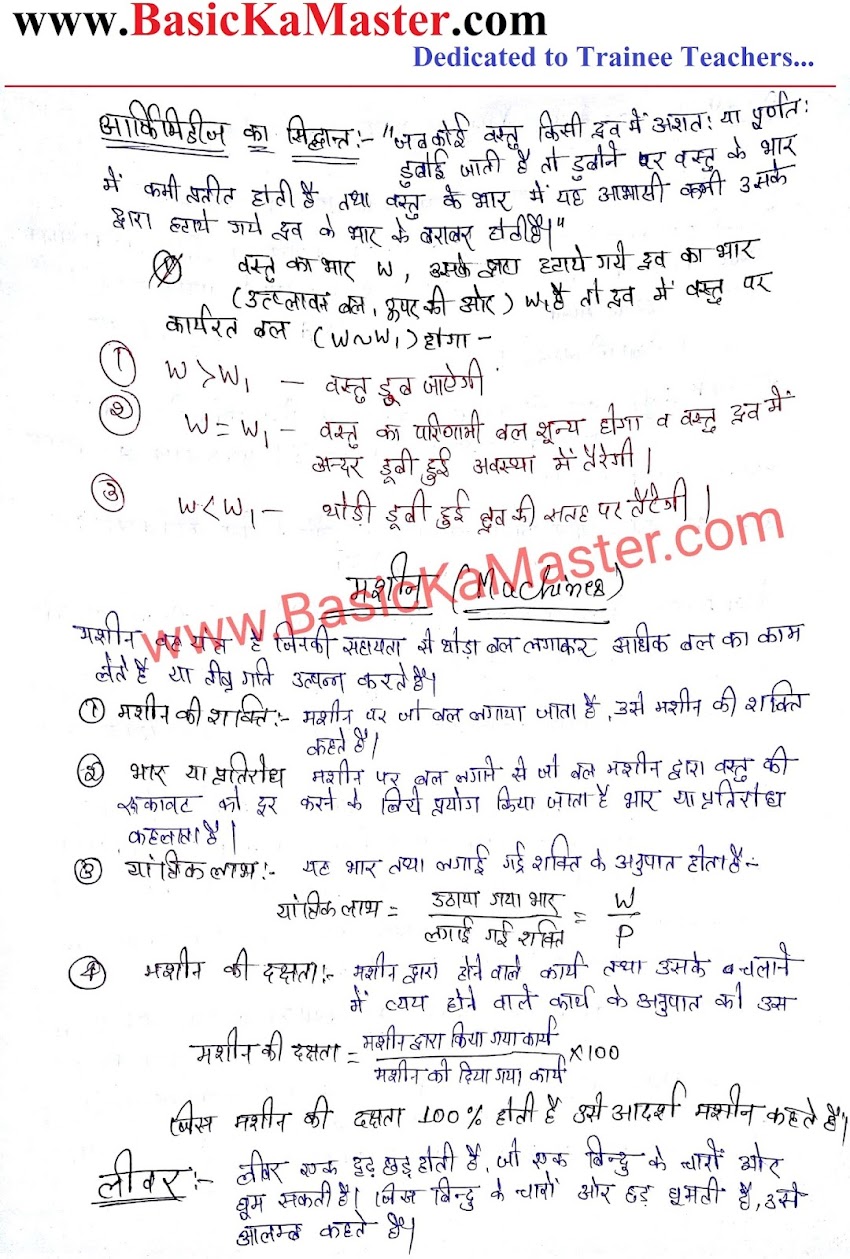 www.BasicKaMaster.com
Dedicated to Trainee Teachers...
आर्किमिडीज का सिद्धान्त:- "जब कोई वस्तु किसी द्रव में अंशतः या पूर्णतः
डुबोई जाती है तो डुबोने पर वस्तु के भार
में कमी प्रतीत होती है तथा वस्तु के भार में यह आभासी कमी उसके
द्वारा हटाये गये द्रव के भार के बराबर होती है।"
वस्तु का भार W, उसके द्वारा हटाये गये द्रव का भार
(उत्प्लावन बल, ऊपर की ओर) W₁ है तो द्रव में वस्तु पर
कार्यरत बल (W~W₁) होगा -
① W>W₁ — वस्तु डूब जाऐगी
② W=W₁ — वस्तु का परिणामी बल शून्य होगा व वस्तु द्रव में
अन्दर डूबी हुई अवस्था में तैरेगी।
③ W<W₁ — थोड़ी डूबी हुई द्रव की सतह पर तैरेगी।
www.BasicKaMaster.com
मशीन (Machines)
मशीन वह यंत्र है जिनकी सहायता से थोड़ा बल लगाकर अधिक बल का काम
लेते है या तीव्र गति उत्पन्न करते है।
① मशीन की शक्ति:- मशीन पर जो बल लगाया जाता है, उसे मशीन की शक्ति
कहते है।
② भार या प्रतिरोध मशीन पर बल लगाने से जो बल मशीन द्वारा वस्तु की
रूकावट को दूर करने के लिये प्रयोग किया जाता है भार या प्रतिरोध
कहलाता है।
③ यांत्रिक लाभ:- यह भार तथा लगाई गई शक्ति के अनुपात होता है:-
यांत्रिक लाभ = उठाया गया भार / लगाई गई शक्ति = W / P
④ मशीन की दक्षता:- मशीन द्वारा होने वाले कार्य तथा उसके चलाने
में व्यय होने वाले कार्य के अनुपात को उस
मशीन की दक्षता = मशीन द्वारा किया गया कार्य / मशीन को दिया गया कार्य ×100
जिस मशीन की दक्षता 100% होती है उसे आदर्श मशीन कहते है।
लीवर:- लीवर एक दृढ़ छड़ होती है, जो एक बिन्दु के चारों ओर
घूम सकती है। जिस बिन्दु के चारों ओर छड़ घूमती है, उसे
आलम्ब कहते है।